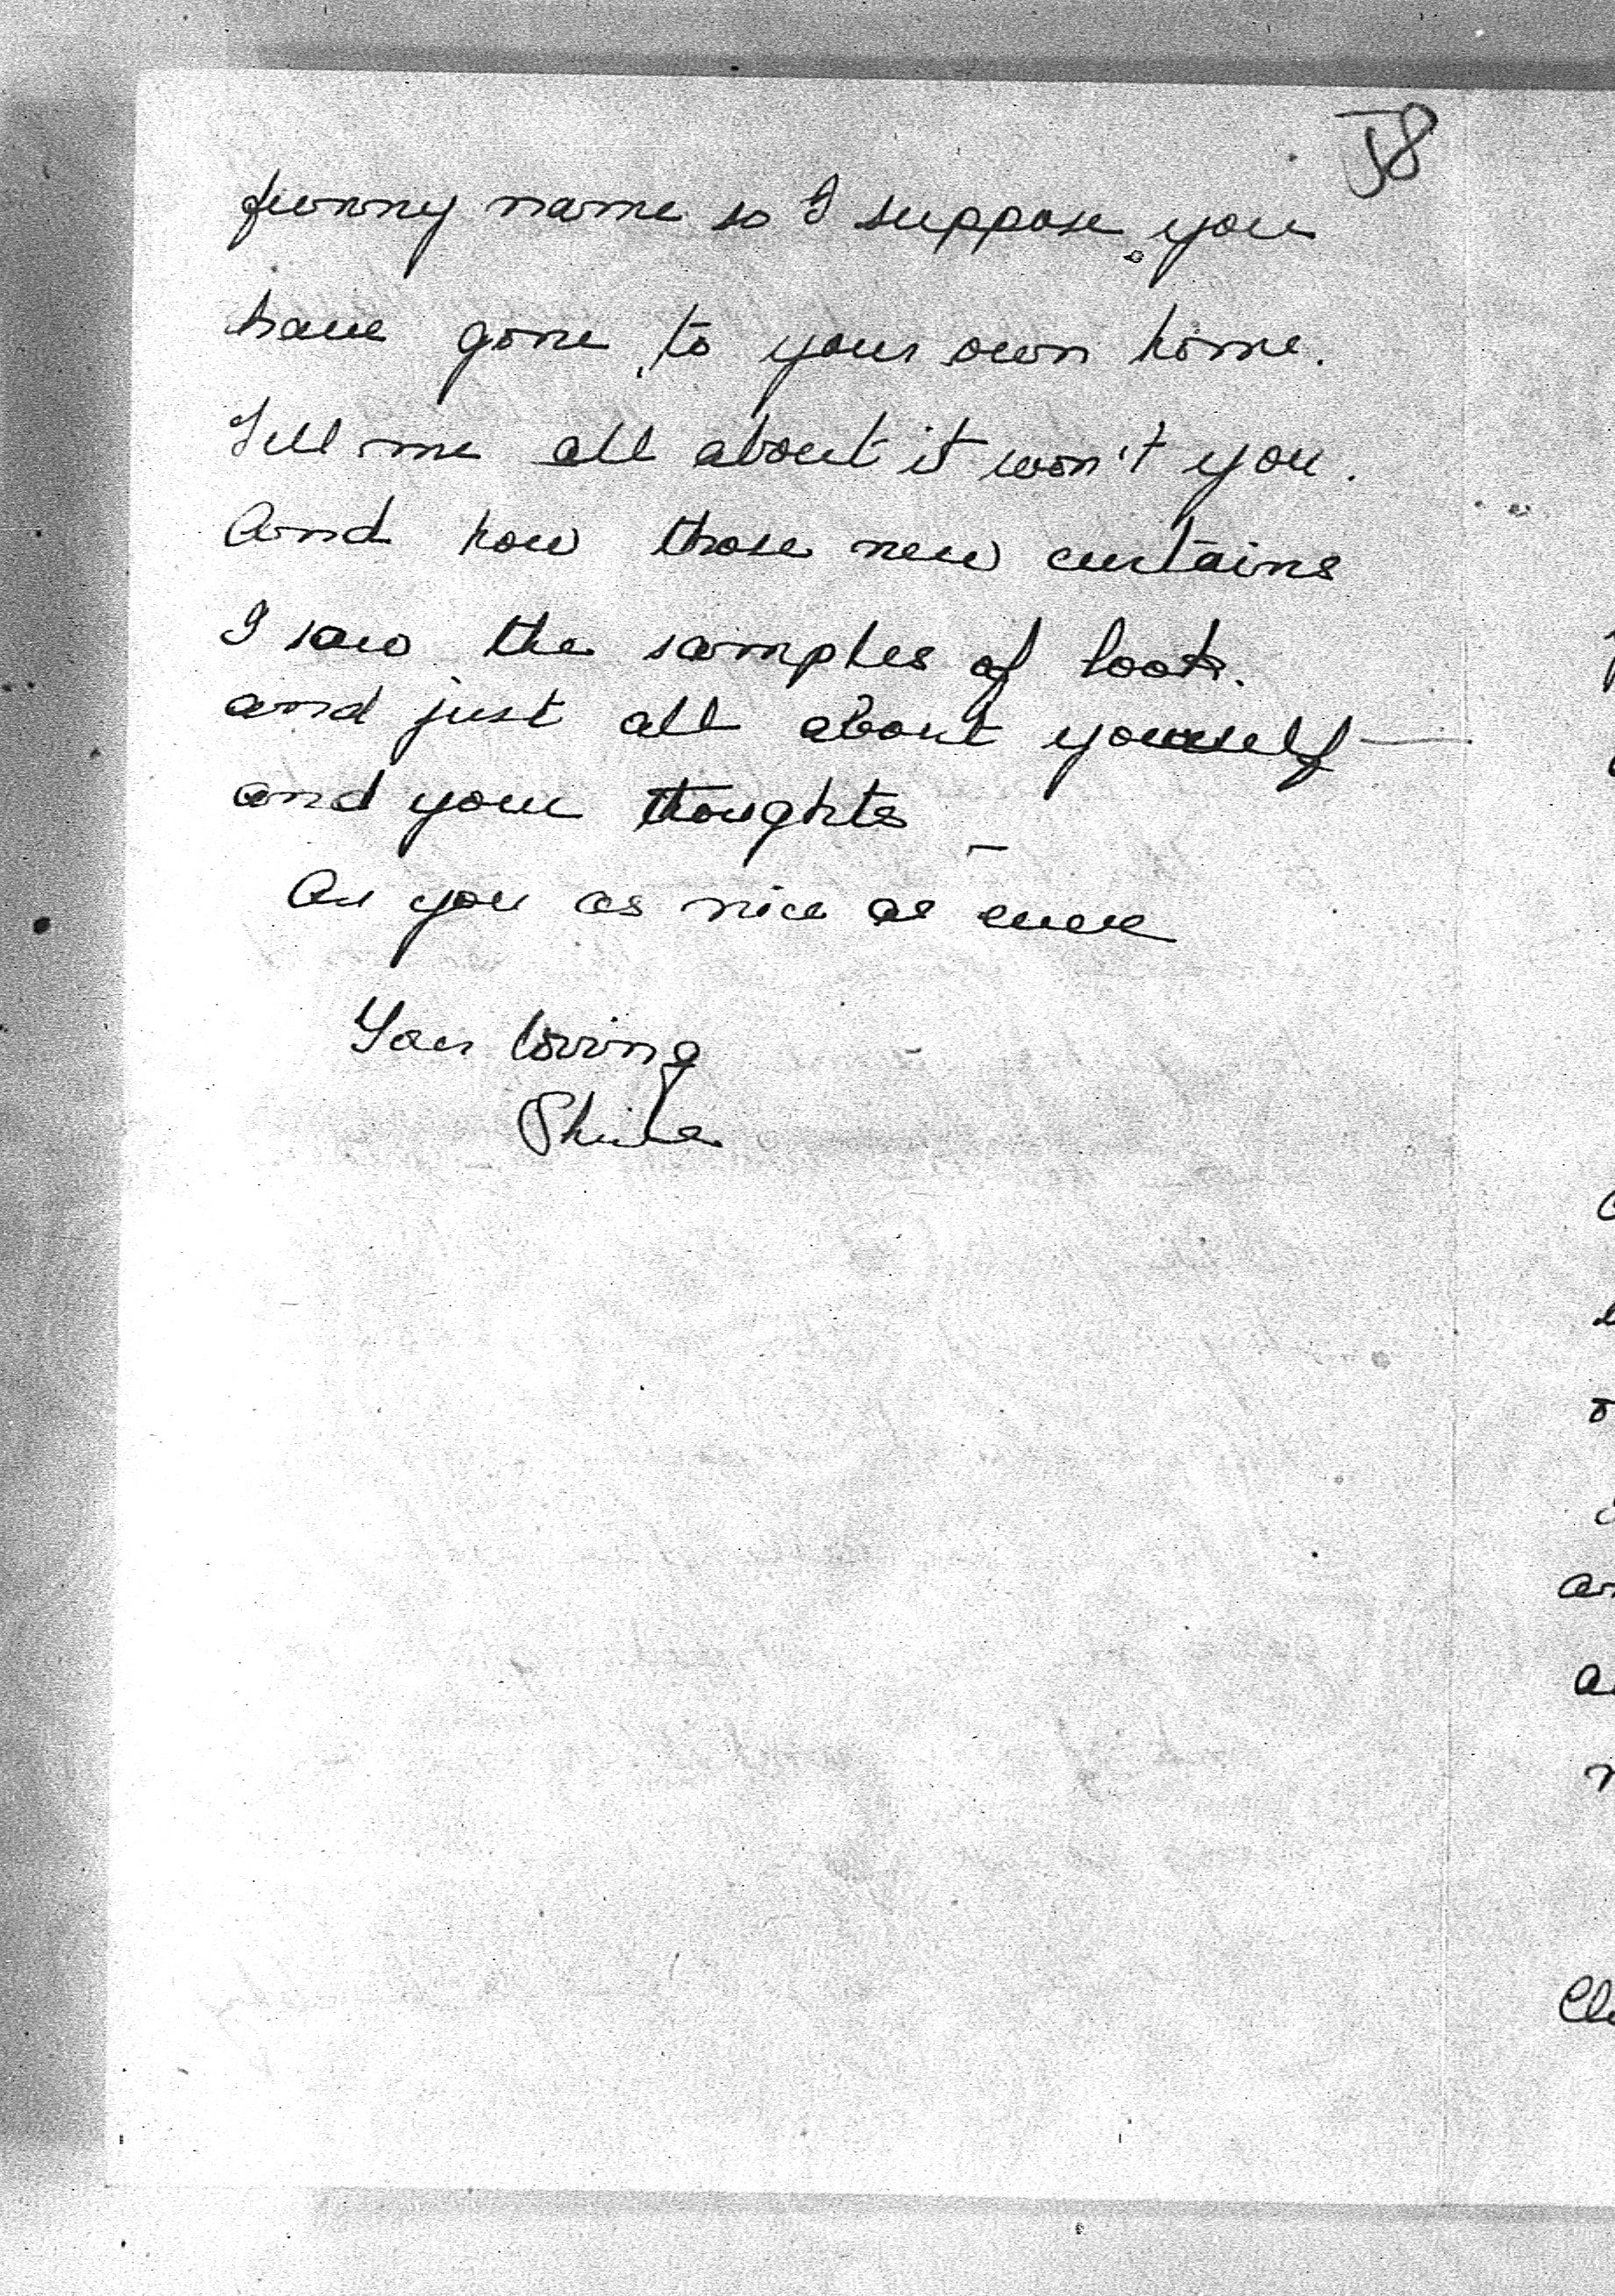 58
funny name so I suppose you
have gone to your own home.
Tell me all about it won't you.
And how those new curtains
I saw the samples of look.
and just all about yourself —
and your thoughts —
Are you as nice as ever
Your loving